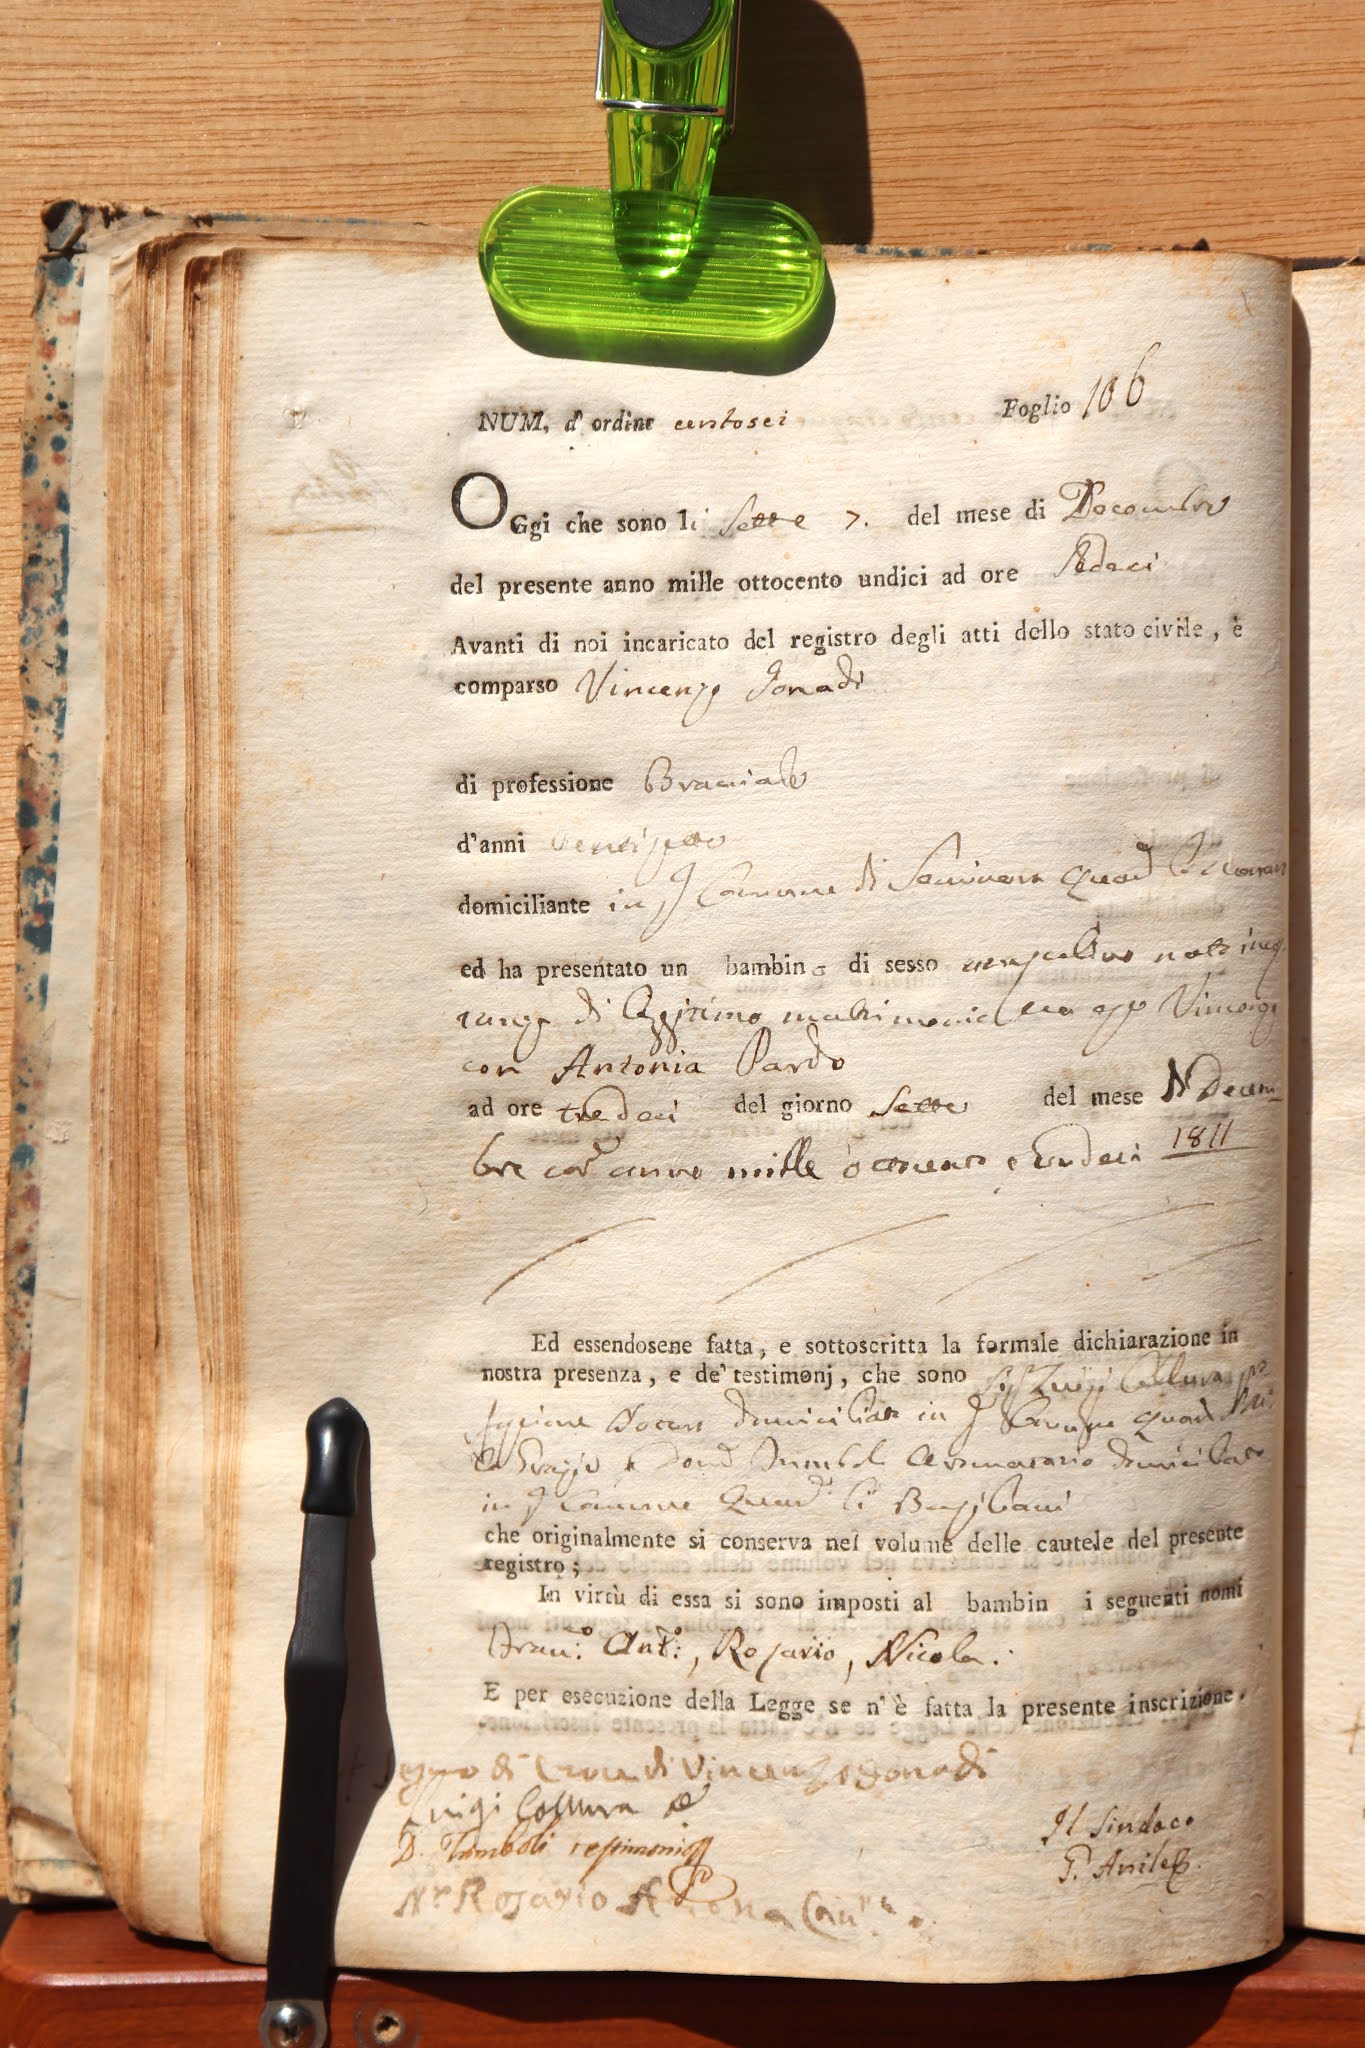 NUM, d' ordine centosei Foglio 106
OGgi che sono li Sette 7. del mese di Decembre
del presente anno mille ottocento undici ad ore Sedeci
Avanti di noi incaricato del registro degli atti dello stato civile, è
comparso Vincenzo Gonadi
di professione Bracciale
d'anni
domiciliante in q Comune di Seminara Quad
ed ha presentato un bambino di sesso mascolino nato
di leggitimo matrimonio Vincenzo
con Antonia Pardo
ad ore tredeci del giorno Sette del mese Decem
bre cor anno mille ottocento e undeci 1811
Ed essendosene fatta, e sottoscritta la formale dichiarazione in
nostra presenza, e de' testimonj, che sono Luigi Collura
domiciliato in q Comune Quad
domiciliato
in q Comune Quad li Basiliani
che originalmente si conserva nel volume delle cautele del presente
registro;
In virtù di essa si sono imposti al bambin i seguenti nomi
Fran:o Ant:o, Rosario, Nicola.
E per esecuzione della Legge se n' è fatta la presente inscrizione.
Segno di Croce di Vincenzo Gonadi
Luigi Collura
D. Tumboli testimonio
Il Sindaco
Nr Rosario